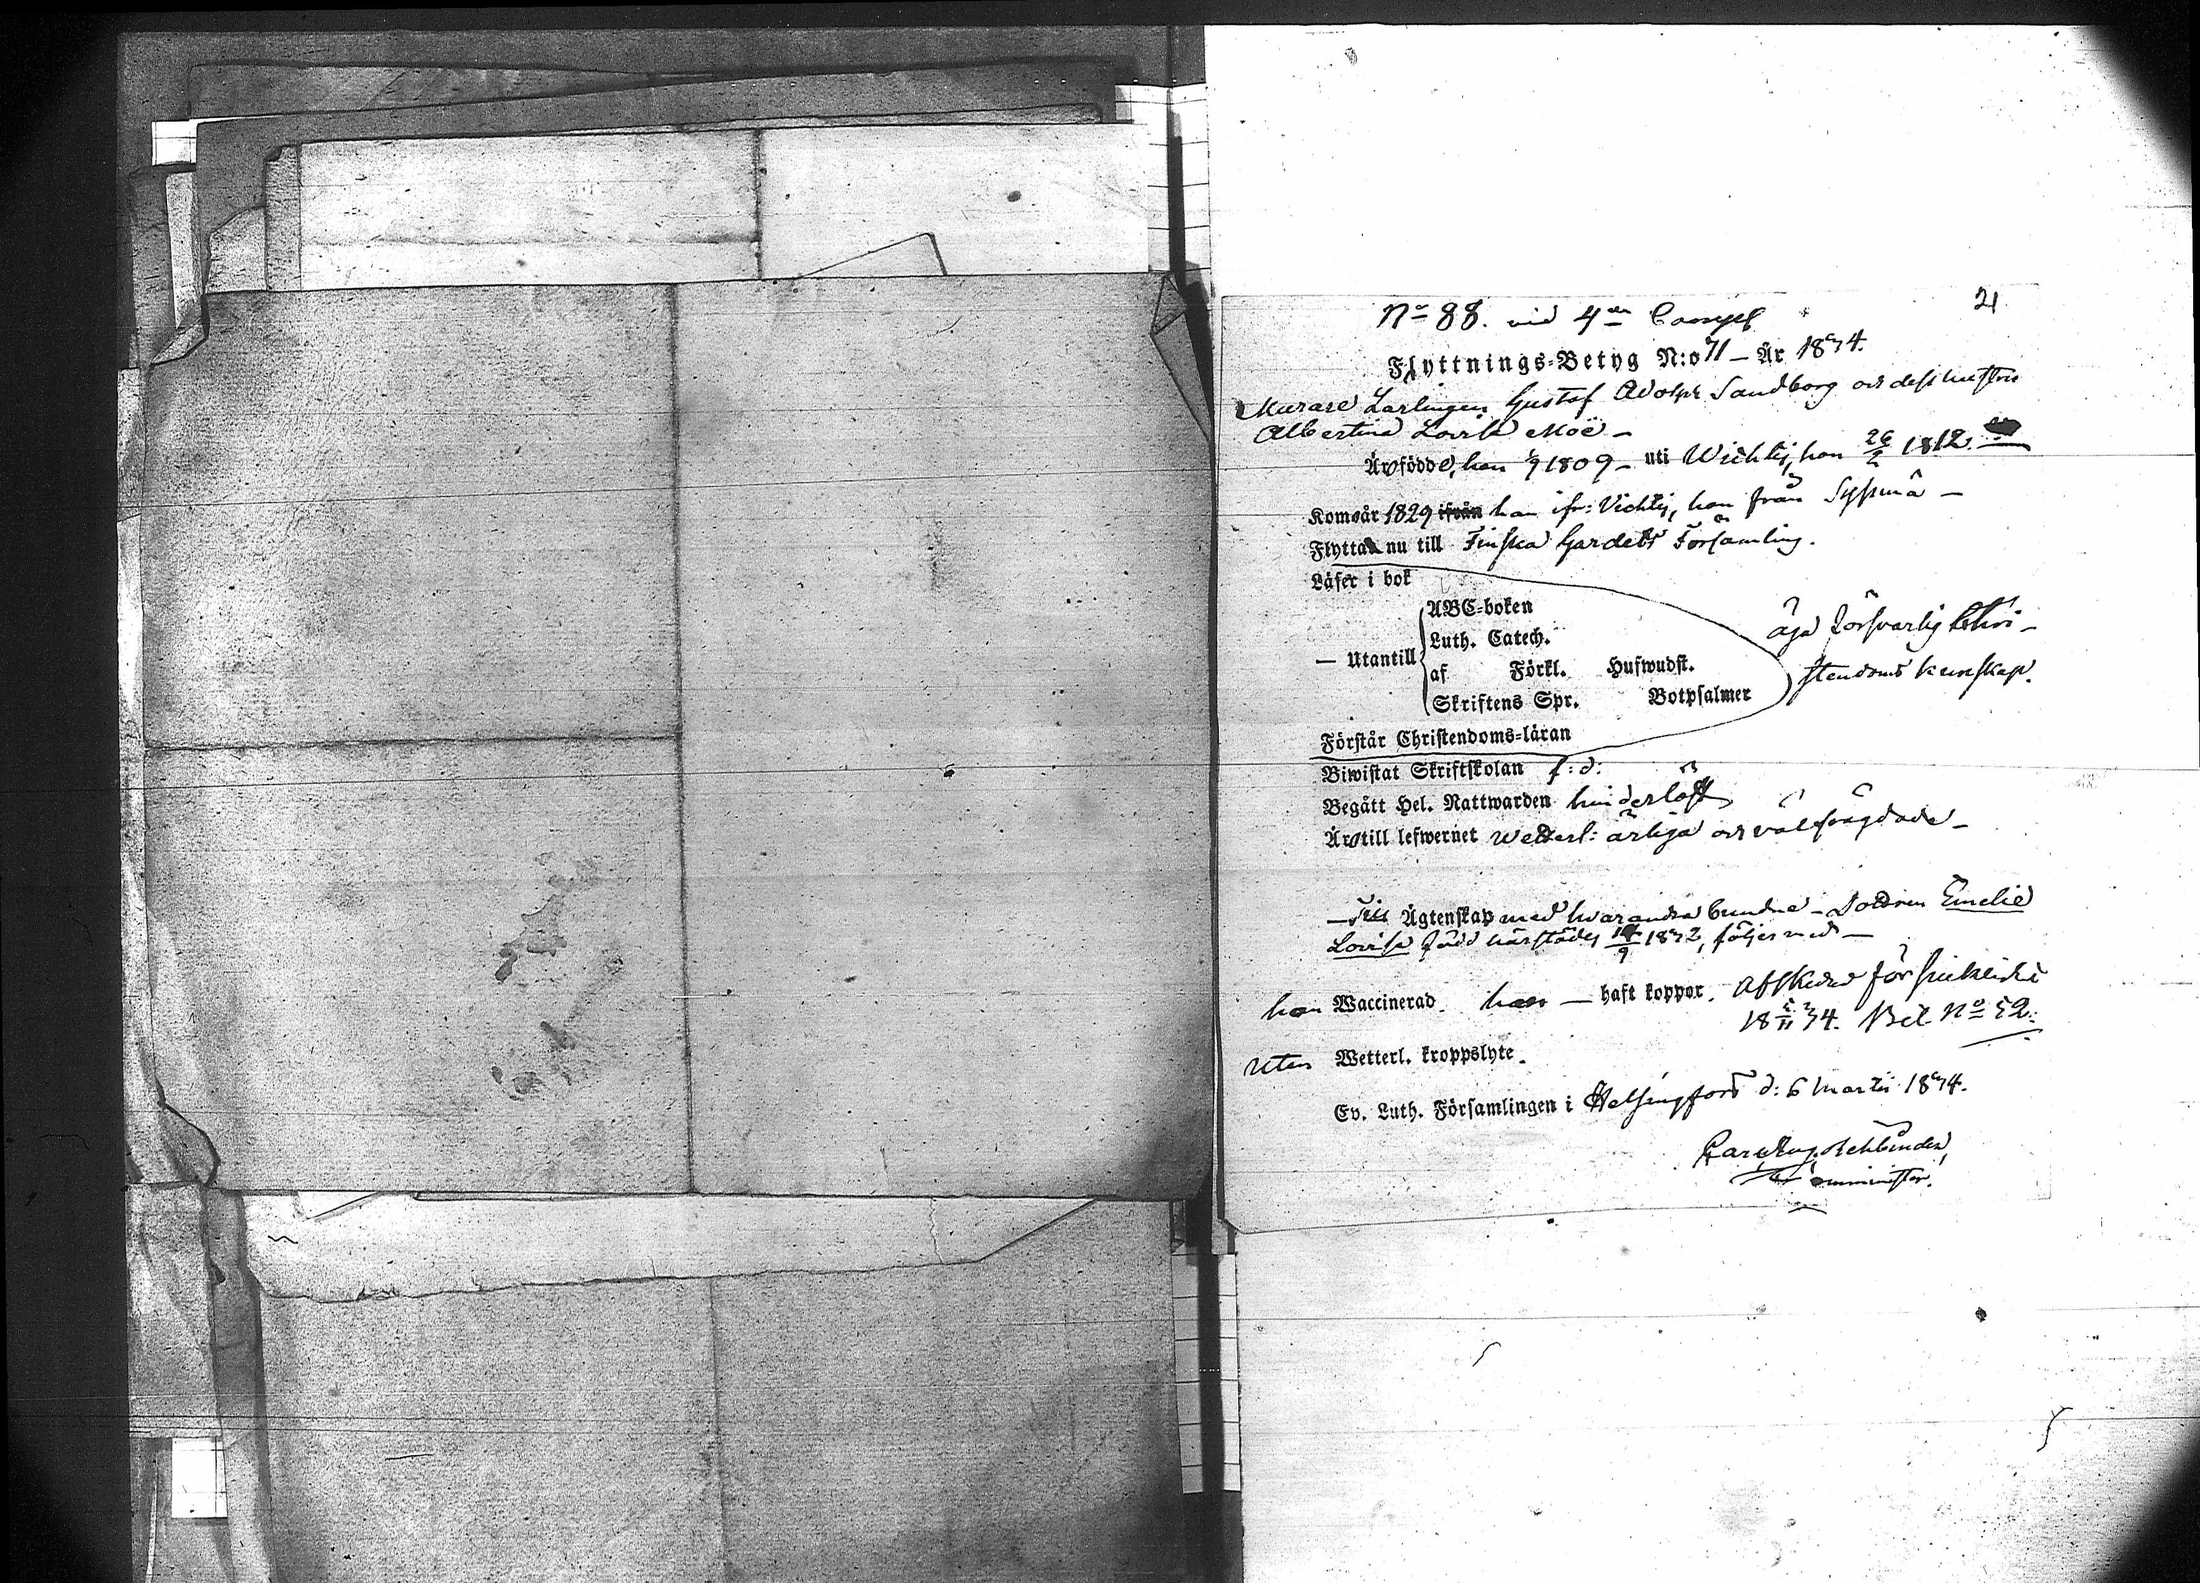 21
No 88. vid 4de Comp
Flyttnings-Betyg N:o 71 – År 1834.
Murare Lärlingen Gustaf Adolph Sandborg och dess hustru
Albertina Lovisa Moë –
Äro födde, han 1809 – uti Wichtis, hon 26/2 1812.
Kom år 1829 ifrån han ifr: Vichtis, hon från Syssmä –
Flytta nu till Finska Gardets Församling.
Läser i bok
ABC-boken
Luth. Catech.
äga försvarlig Chri-
– Utantill
af Förkl. Hufwudst.
stendoms kunskap.
Skriftens Spr. Botpsalmer
Förstår Christendoms-läran
Biwistat Skriftskolan f: d:
Begått Hel. Nattwarden hinderlöst
Äro till lefwernet wetterl: ärliga och välfrägdade –
– Till Ägtenskap med hvarandra bundne – Dottren Emelie
Lovisa född härstädes /9 1832, följer med –
hon Waccinerad. han – haft koppor. Afsked för
1834. Bil No 52:
Utan Wetterl. kroppslyte.
Ev. Luth. Församlingen i Helsingfors d: 6 Martii 1834.
Carl Aug. Rehbinder,
Comminister.